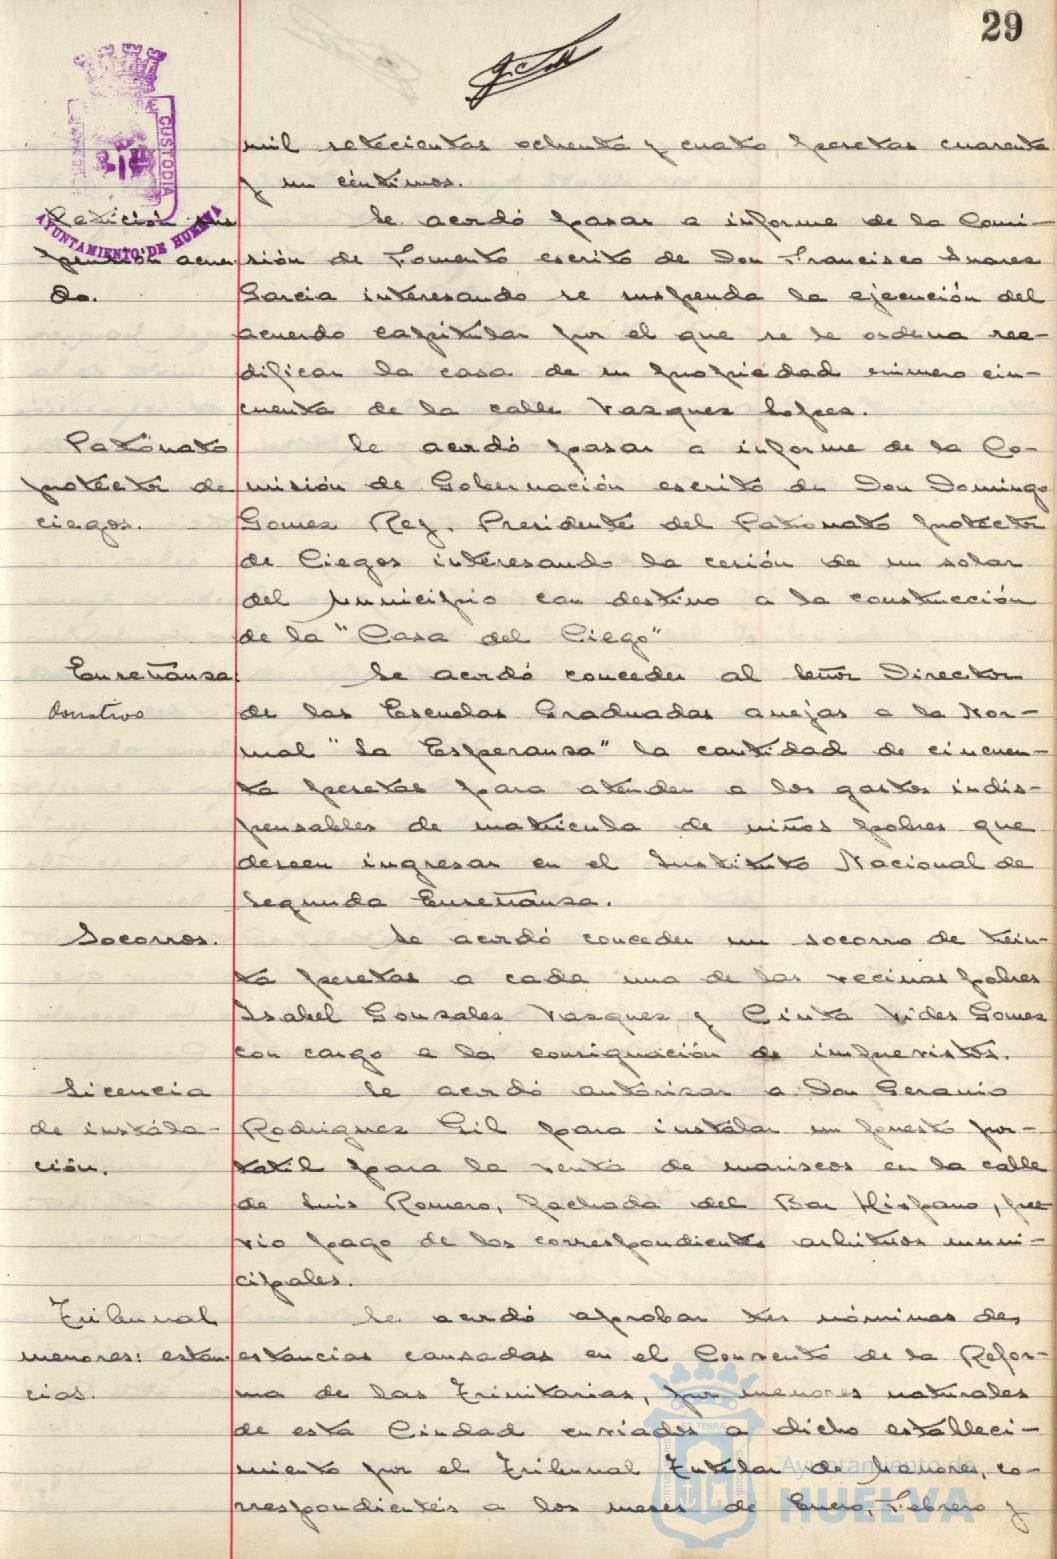 29
CUSTODIA
AYUNTAMIENTO DE HUELVA
mil setecientas ochenta y cuatro pesetas cuarenta
y un céntimos.
Petición sus Se acordó pasar a informe de la Comi-
pensión acuer sión de Fomento escrito de Don Francisco Suarez
do. Garcia interesando se suspenda la ejecución del
acuerdo capitular por el que se le ordena ree-
dificar la casa de su propiedad número cin-
cuenta de la calle Vazquez Lopez.
Patónato Se acordó pasar a informe de la Co-
protector de misión de Gobernación escrito de Don Domingo
ciegos. Gomez Rey, Presidente del Patronato protector
de Ciegos interesando la cesión de un solar
del Municipio con destino a la construcción
de la "Casa del Ciego"
Enseñanza Se acordó conceder al Señor Director
donativo de las Escuelas Graduadas anejas a la Nor-
mal "La Esperanza" la cantidad de cincuen-
ta pesetas para atender a los gastos indis-
pensables de matricula de niños pobres que
deseen ingresar en el Instituto Nacional de
Segunda Enseñanza.
Socorros. Se acordó conceder un socorro de trein-
ta pesetas a cada una de las vecinas pobres
Isabel Gonzalez Vazquez y Cinta Vides Gomez
con cargo a la consignación de imprevistos.
Licencia Se acordó autorizar a Don Geranio
de instala- Rodriguez Gil para instalar un puesto por-
ción. tatil para la venta de mariscos en la calle
de Luis Romero, fachada del Bar Hispano, pre
vio pago de los correspondientes arbitrios muni-
cipales.
Tribunal Se acordó aprobar tres nóminas de
menores: estan estancias causadas en el Convento de la Refor-
cias. ma de las Trinitarias, por menores naturales
de esta Ciudad enviados a dicho estableci-
miento por el Tribunal Tutelar de Menores, co-
rrespondientes a los meses de Enero, Febrero y
Ayuntamiento de
HUELVA